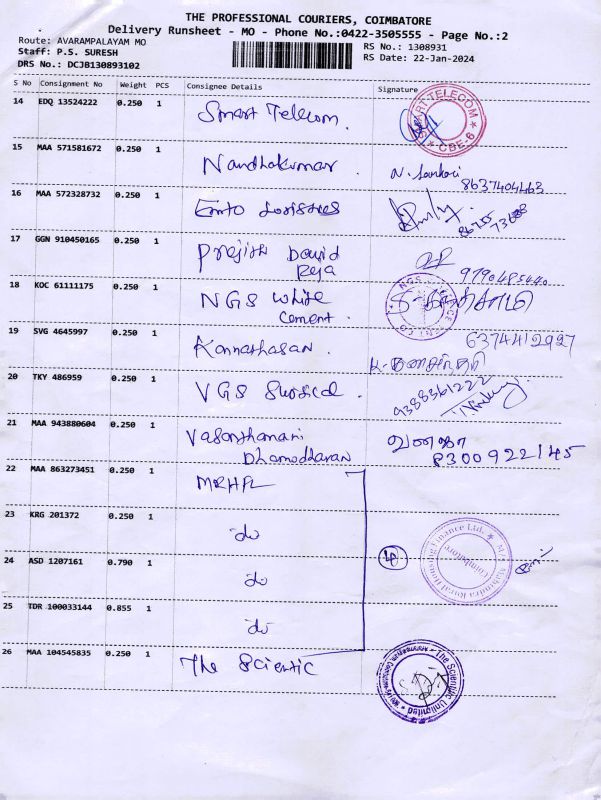 THE PROFESSIONAL COURIERS, COIMBATORE
Delivery Runsheet - MO - Phone No.:0422-3505555 - Page No.:2
Route: AVARAMPALAYAM MO
RS No.: 1308931
Staff: P.S. SURESH
RS Date: 22-Jan-2024
DRS No.: DCJB130893102
S No Consignment No Weight PCS Consignee Details Signature
14 EDQ 13524222 0.250 1 Smart Telecom.
SMART TELECOM CBE-6
15 MAA 571581672 0.250 1 Nandhakumar.
8637404463
16 MAA 572328732 0.250 1
17 GGN 910450165 0.250 1 Prejith David
Reja
9790485440
18 KOC 61111175 0.250 1 NGS White
cement.
19 SVG 4645997 0.250 1 Kannathasan.
6374412927
20 TKY 486959 0.250 1 VGS Surgical.
9388361222
21 MAA 943880604 0.250 1 Vasanthamani
Dhamodharan
8300922145
22 MAA 863273451 0.250 1 MRHFL
23 KRG 201372 0.250 1 do
24 ASD 1207161 0.790 1 do
Mahindra Rural Housing Finance Ltd.
Coimbatore
25 TDR 100033144 0.855 1 do
26 MAA 104545835 0.250 1 The Scientic
The Scientific Unlimited